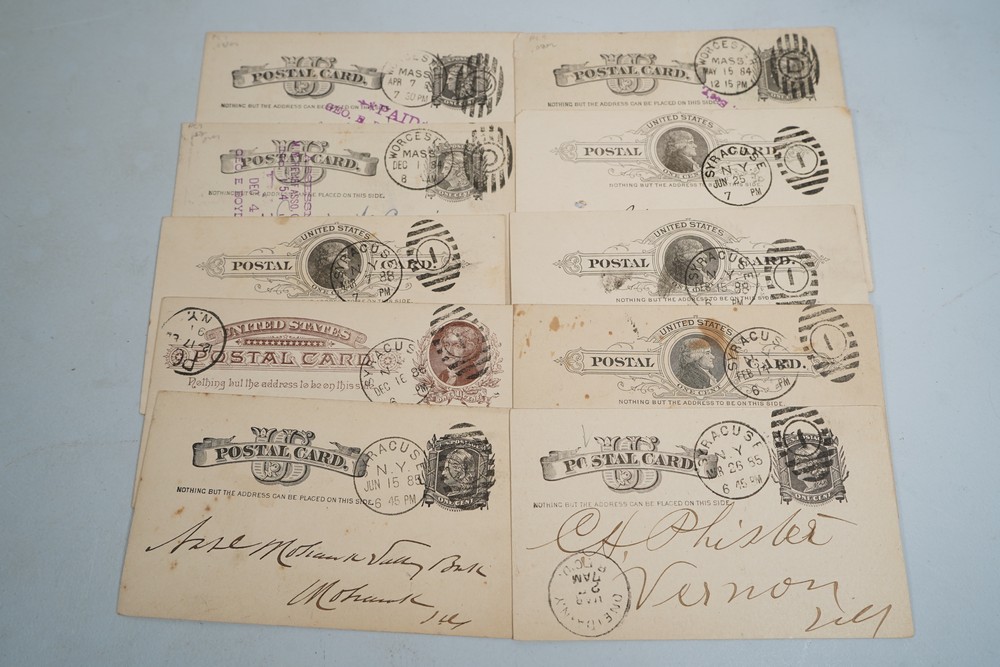 POSTAL CARD.
WORCESTER
MASS.
APR 7
7 30 PM
NOTHING BUT THE ADDRESS CAN BE PLACED ON THIS SIDE.
PAID
GEO.
POSTAL CARD.
WORCESTER
MASS.
MAY 15 84
12 15 PM
NOTHING BUT THE ADDRESS CAN BE PLACED ON THIS SIDE.
POSTAL CARD.
WORCESTER
MASS
DEC 1 84
8 AM
NOTHING BUT THE ADDRESS CAN BE PLACED ON THIS SIDE.
DEC 4
GEO E BOYD
UNITED STATES
POSTAL CARD.
NOTHING BUT THE ADDRESS TO BE ON THIS SIDE.
SYRACUSE
N.Y.
JUN 25
7 PM
1
UNITED STATES
POSTAL CARD.
ONE CENT
NOTHING BUT THE ADDRESS TO BE ON THIS SIDE
SYRACUSE
88
7 PM
1
UNITED STATES
POSTAL CARD.
NOTHING BUT THE ADDRESS TO BE ON THIS SIDE.
SYRACUSE
15 88
PM
1
UNITED STATES
POSTAL CARD
Nothing but the address to be on this side
SYRACUSE
N.Y.
DEC 1 86
6
N.Y.
UNITED STATES
POSTAL CARD.
ONE CENT
NOTHING BUT THE ADDRESS TO BE ON THIS SIDE.
SYRACUSE
FEB
6 PM
1
US
POSTAL CARD.
NOTHING BUT THE ADDRESS CAN BE PLACED ON THIS SIDE.
SYRACUSE
N.Y.
JUN 15 85
6 45 PM
ONE CENT
Natl Mohawk Valley Bank
Mohawk
US
POSTAL CARD.
NOTHING BUT THE ADDRESS CAN BE PLACED ON THIS SIDE.
SYRACUSE
N.Y
26 85
6 45 PM
1
ONE CENT
C H Phister
Vernon
ONEIDA N.Y.
7 AM